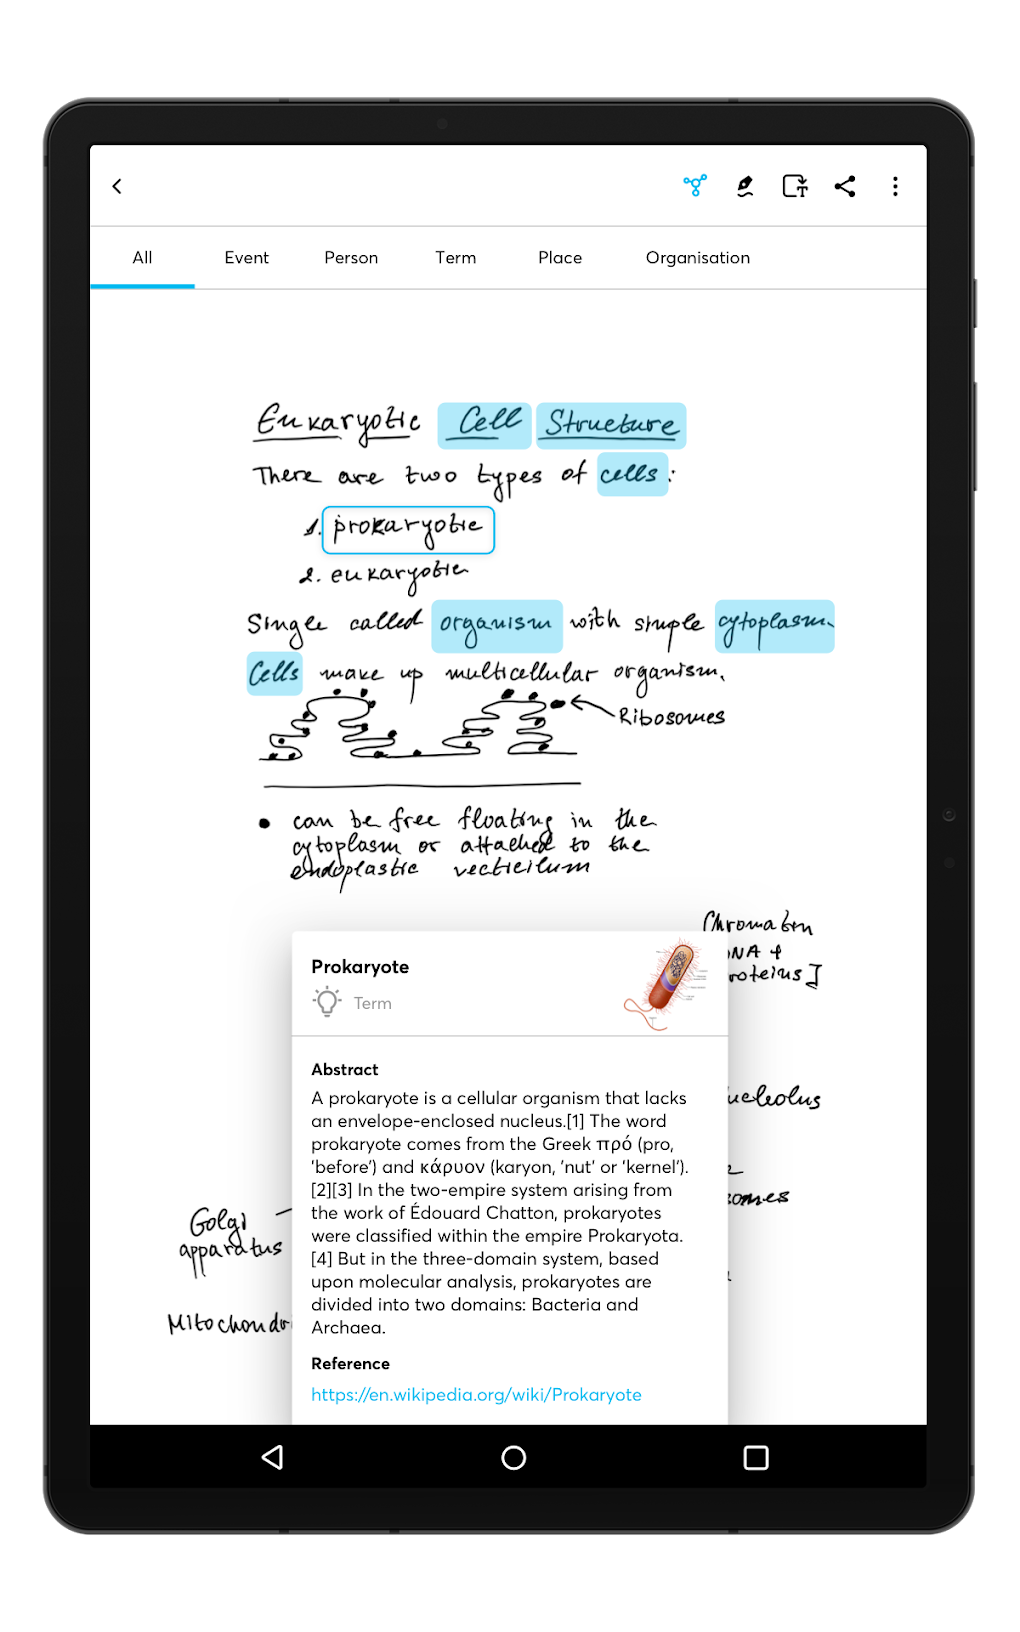 All Event Person Term Place Organisation
Eukaryotic Cell Structure
There are two types of cells:
1. prokaryotic
2. eukaryotic
Single called organism with simple cytoplasm.
Cells make up multicellular organism.
Ribosomes
• can be free floating in the
cytoplasm or attached to the
endoplastic vecticilum
Chromatin
DNA +
proteins]
Prokaryote
Term
Abstract
A prokaryote is a cellular organism that lacks
an envelope-enclosed nucleus.[1] The word
prokaryote comes from the Greek πρό (pro,
'before') and κάρυον (karyon, 'nut' or 'kernel').
[2][3] In the two-empire system arising from
the work of Édouard Chatton, prokaryotes
were classified within the empire Prokaryota.
[4] But in the three-domain system, based
upon molecular analysis, prokaryotes are
divided into two domains: Bacteria and
Archaea.
Reference
https://en.wikipedia.org/wiki/Prokaryote
ucleolus
somes
Golgi
apparatus
Mitochondri